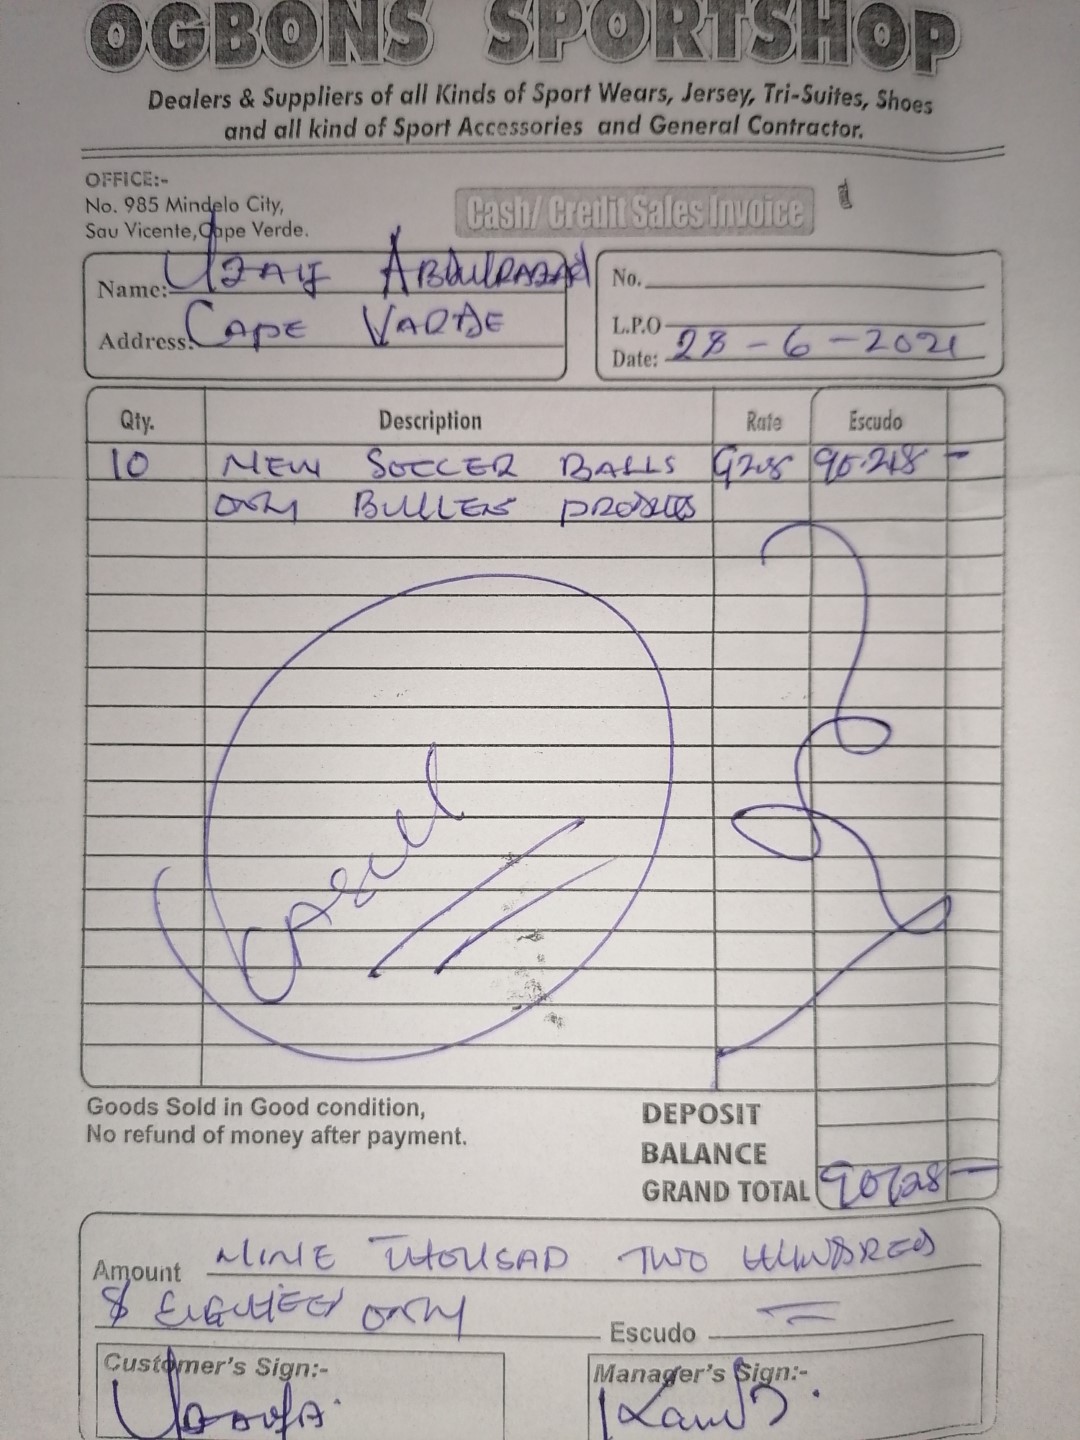 OGBONS SPORTSHOP
Dealers & Suppliers of all Kinds of Sport Wears, Jersey, Tri-Suites, Shoes
and all kind of Sport Accessories and General Contractor.
OFFICE:-
No. 985 Mindelo City,
Sau Vicente, Cape Verde.
Cash/ Credit Sales Invoice
Name:
Address: CAPE
No.
L.P.O
Date: 28-6-2021
Qty. Description Rate Escudo
10 NEW SOCCER BALLS
ONLY
Goods Sold in Good condition,
No refund of money after payment.
DEPOSIT
BALANCE
GRAND TOTAL
Amount NINE THOUSAD TWO HUNDRED
& ONLY
Escudo
Customer's Sign:-
Manager's Sign:-